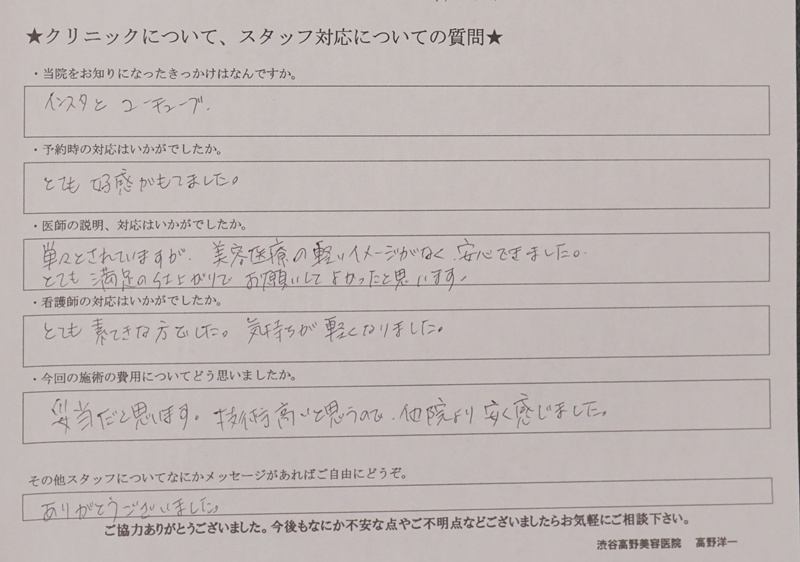 ★クリニックについて、スタッフ対応についての質問★
・当院をお知りになったきっかけはなんですか。
インスタと ユーチューブ.
・予約時の対応はいかがでしたか。
とても 好感がもてました。
・医師の説明、対応はいかがでしたか。
単々とされていますが、美容医療の軽いイメージがなく、安心できました。
とても 満足の仕上がりで お願いしてよかったと思います。
・看護師の対応はいかがでしたか。
とても 素てきな方でした。気持ちが 軽くなりました。
・今回の施術の費用についてどう思いましたか。
妥当だと思います。技術高いと思うので、他院より 安く感じました。
その他スタッフについてなにかメッセージがあればご自由にどうぞ。
ありがとうございました。
ご協力ありがとうございました。今後もなにか不安な点やご不明点などございましたらお気軽にご相談下さい。
渋谷高野美容医院 高野洋一